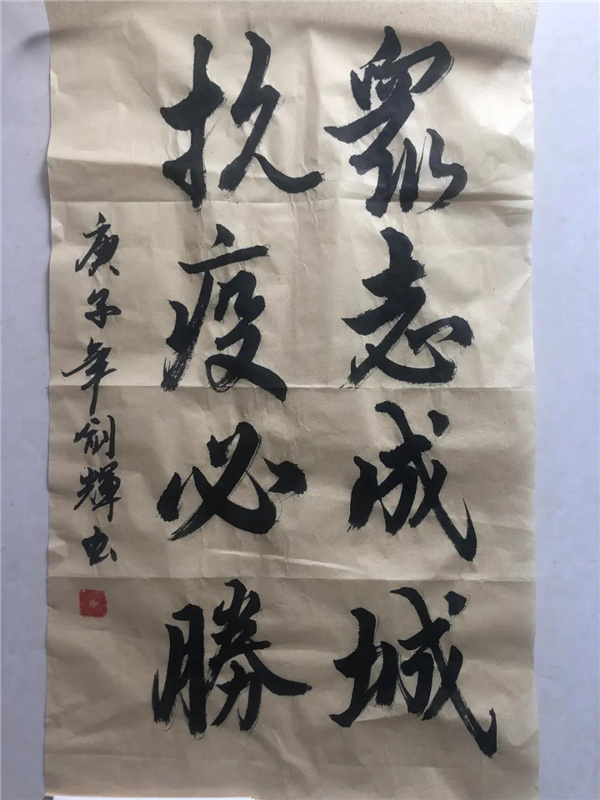 眾志成城
抗疫必勝
庚子年剑輝书